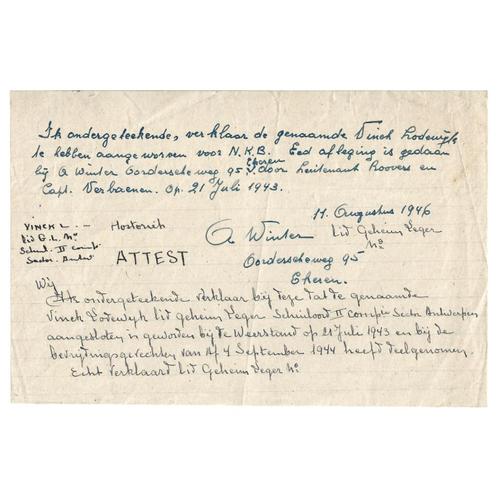 Ik ondergeteekende, verklaar de genaamde Vinck Lodewijk
te hebben aangeworven voor N.K.B. Eed aflegging is gedaan
bij A Winter Oorderscheweg 95 Ekeren door Lieutenant Roovers en
Capt. Verbaenen. Op. 21 Juli 1943.
11. Augustus 1946
A Winter Lid Geheim Leger
No
Oorderscheweg 95
Ekeren.
VINCK L. -
Lid G.L. No
Schuil. II
Sector.
ATTEST
Wij
Ik ondergeteekende verklaar bij deze dat de genaamde
Vinck Lodewyk lid geheim Leger Schuiloord II Sector Antwerpen
aangesloten is geworden bij de Weerstand op 21 Juli 1943 en bij de
bevrydingsgevechten van af 4 September 1944 heeft deelgenomen.
Echt verklaard Lid Geheim Leger No